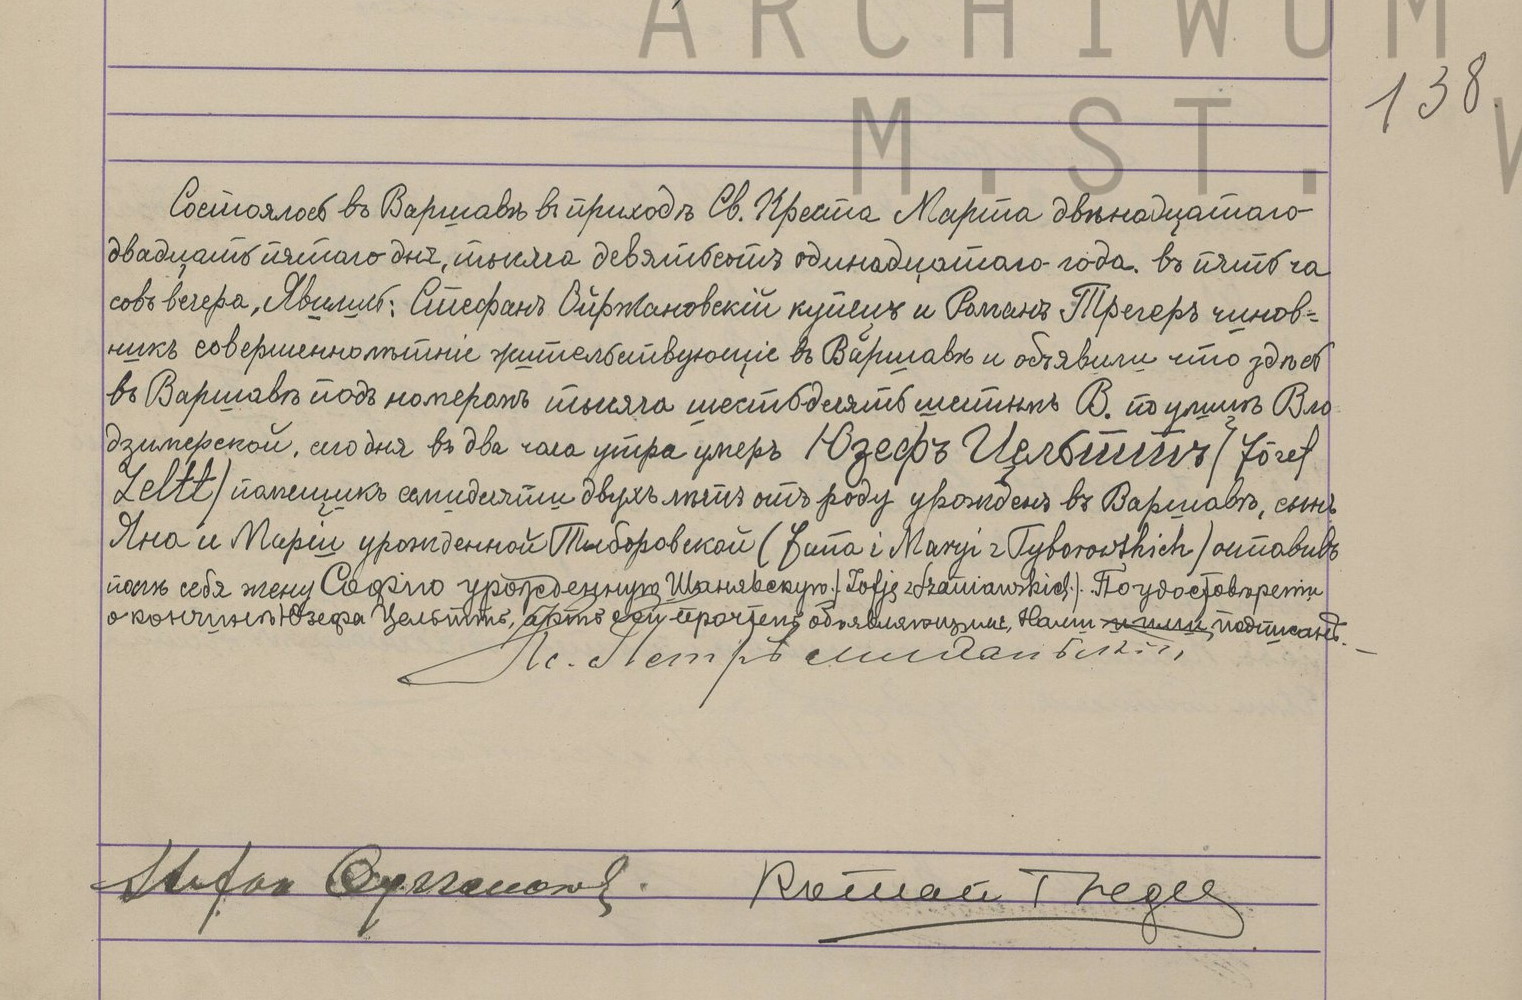 ARCHIWUM
138.
M. ST. W
Состоялось въ Варшавѣ въ приходѣ Св. Креста Марта двѣнадцатаго
двадцать пятаго дня, тысяча девятьсотъ одинадцатаго года. въ пять ча
совъ вечера, Явились: Стефанъ Ойржановскій купецъ и Романъ Трегеръ чинов=
никъ совершеннолѣтніе жительствующіе въ Варшавѣ и объявили что здѣсь
въ Варшавѣ подъ номеромъ тысяча шестьдесятъ шестымъ В. по улицѣ Вло
дзимерской, сегодня въ два часа утра умеръ Юзефъ Цельттъ (Józef
Zeltt) помещикъ семидесяти двухъ лѣтъ отъ роду урожденъ въ Варшавѣ, сынъ
Яна и Маріи урожденной Тыборовской (Jana i Maryi z Tyborowskich) оставивъ
послѣ себя жену Софію урожденную Шанявскую. (Zofję z Szaniawskich). По удостовѣреніи
о кончинѣ Юзефа Цельттъ, актъ сей прочтенъ объявляющимъ, Нами и ими подписанъ. —
Кс. Петръ
Stefan
Roman Treger